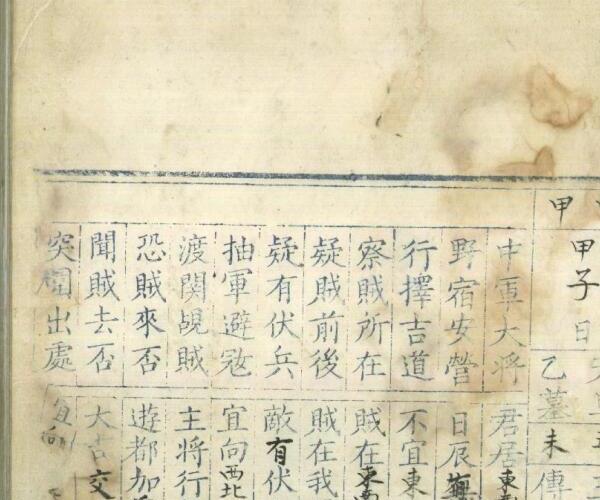 甲
甲子日
乙墓未
傳
中軍大将
君居東
野宿安營
日辰
行擇吉道
不宜東
察賊所在
賊在東南
疑賊前後
賊在我
疑有伏兵
敵有伏
抽軍避冦
宜向西北
渡関覘賊
主将行
恐賊來否
遊都加
聞賊去否
大吉交
突圍出處
宜向